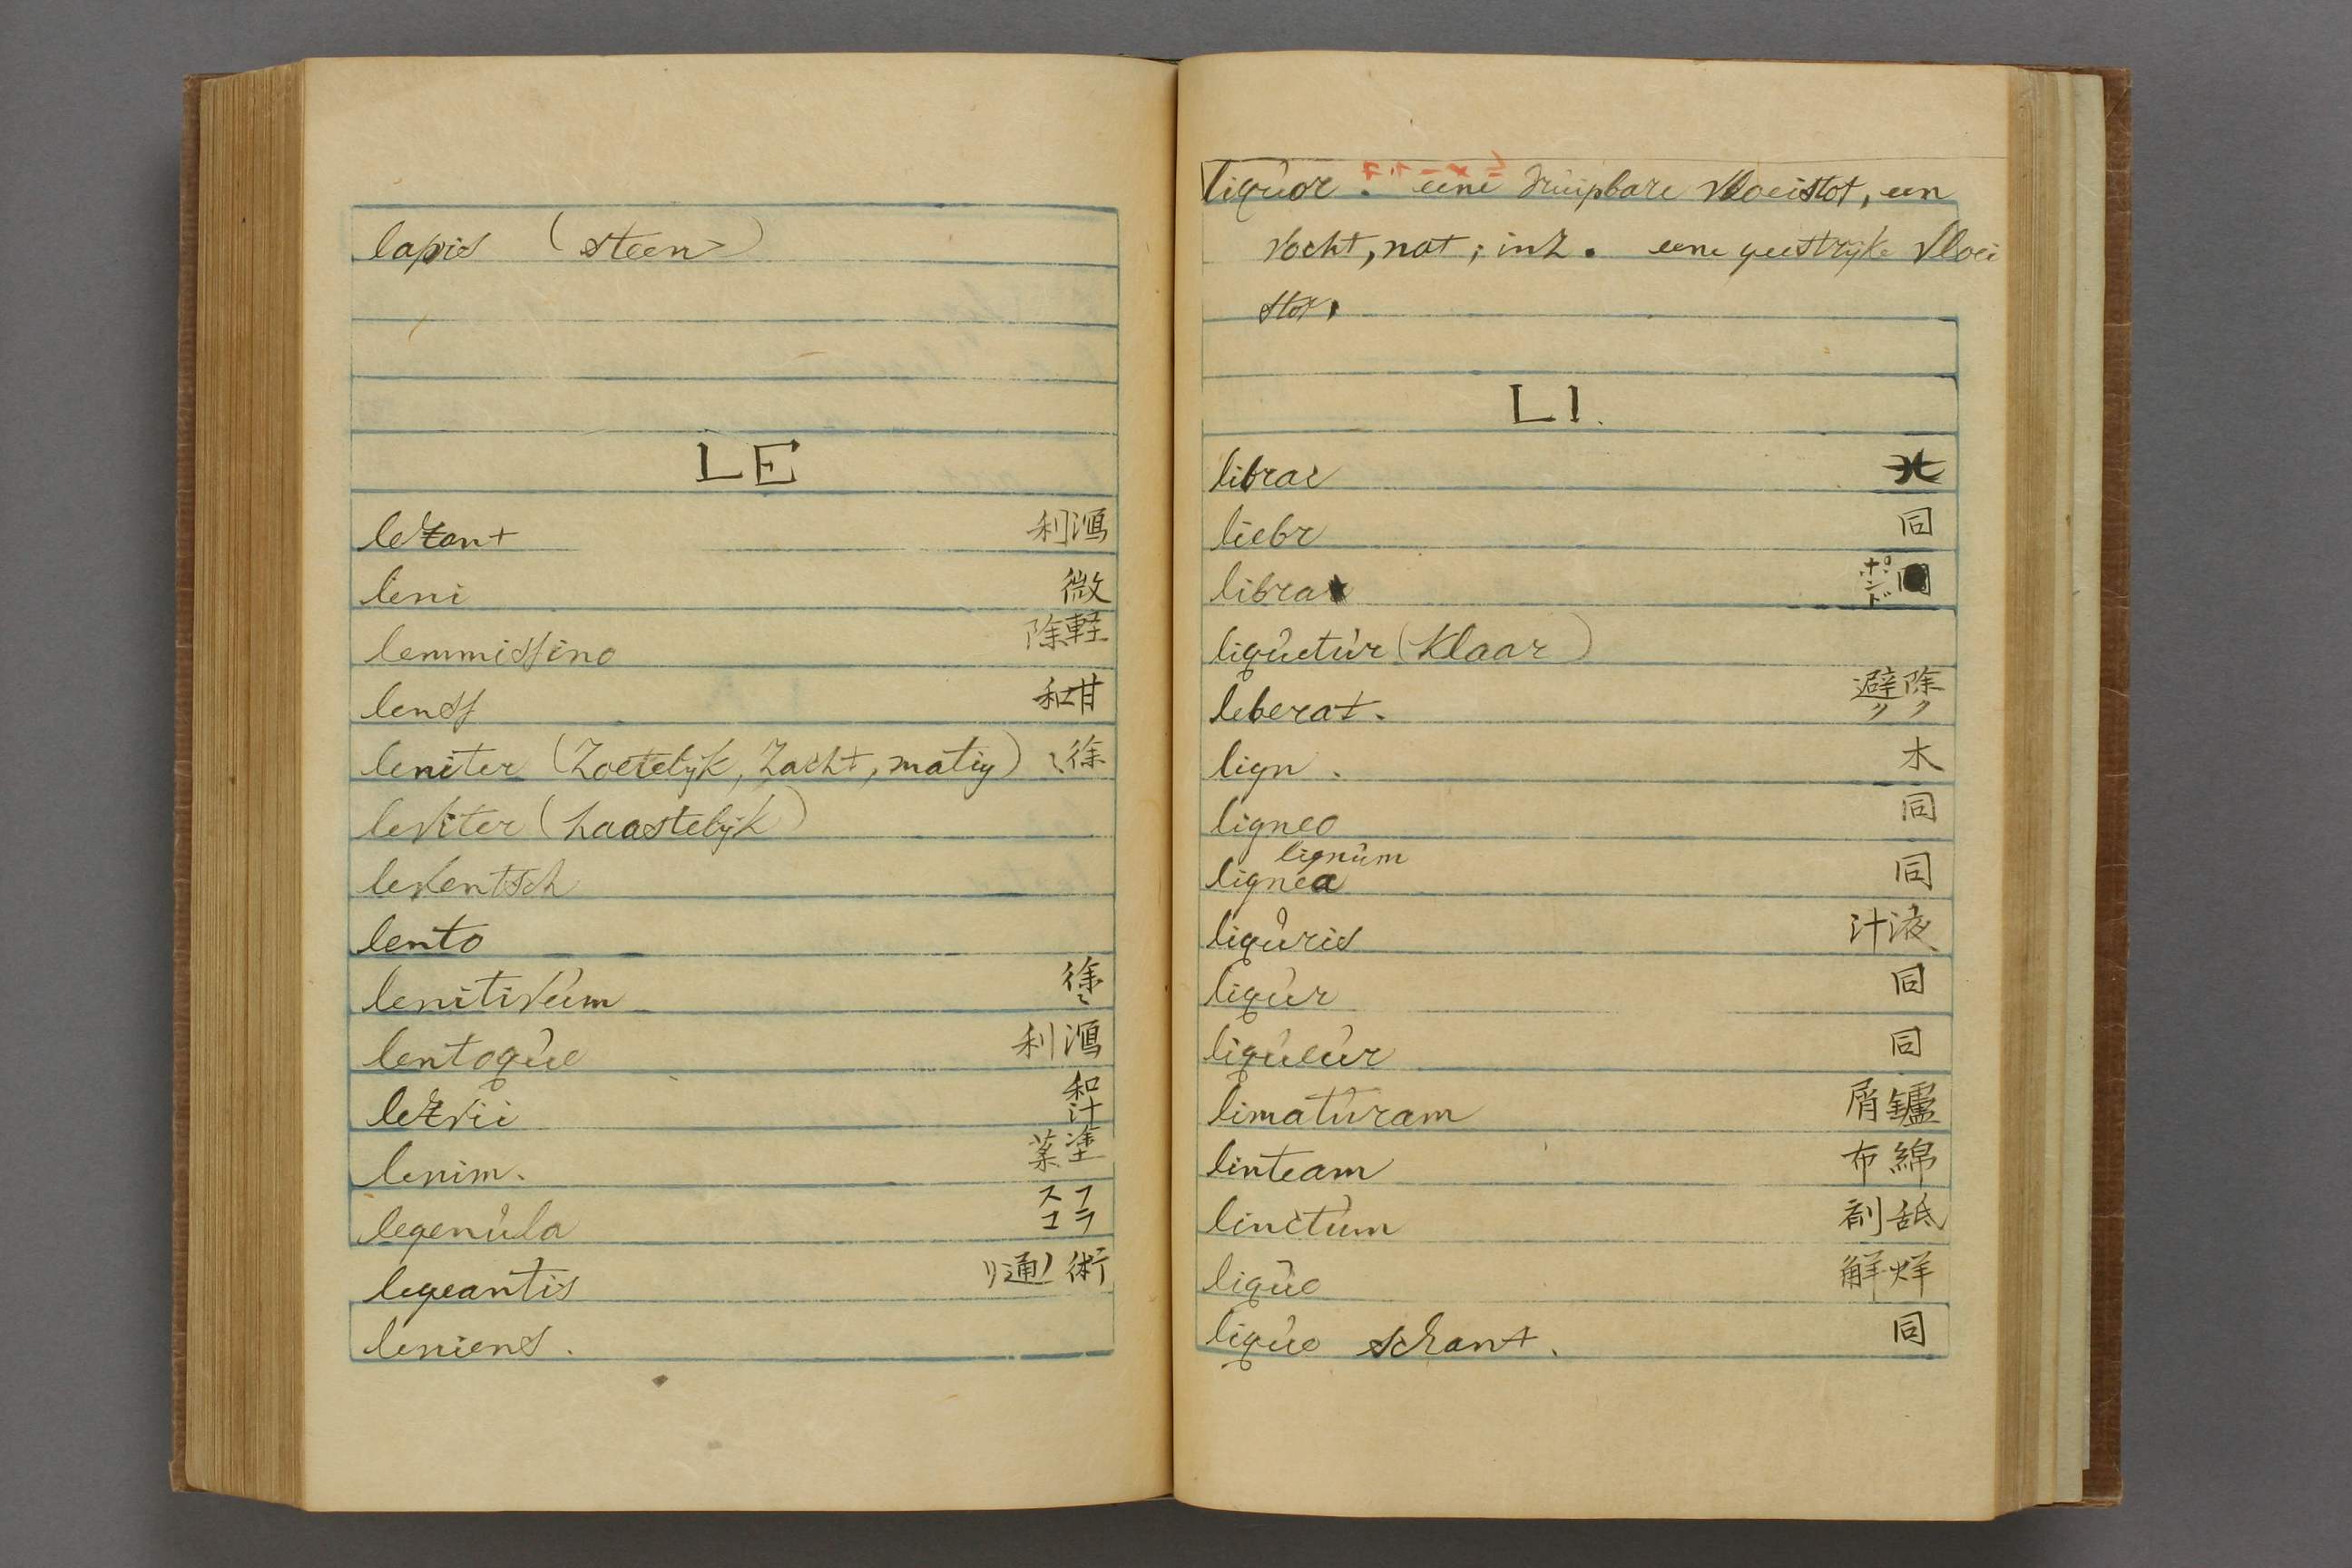 lapis (steen)
LE
lexant 利瀉
leni 微
lemmissino 除軽
lens 和甘
leniter (zoetelijk, zacht, matig) 徐〻
leviter (haastelijk)
leventsch
lento
lenitivum 徐〻
lentoque 利瀉
lexvii 和汁
lenim. 薬塗
legenula スフコラ
legeantis 術ノ通リ
leniens.
liquor. eene druipbare vloeistof, een
vocht, nat; inz. eene geestrijke vloei
stof,
LI.
librae
liebr 同
libra ポンド
liquetur (klaar)
leberat. 避ク除ク
lign. 木
ligneo 同
lignum
lignea 同
liquris 汁液
liqur 同
liqueur 同
limaturam 屑鑢
linteam 布綿
linctum 剤舐
lique 解烊
lique schant. 同